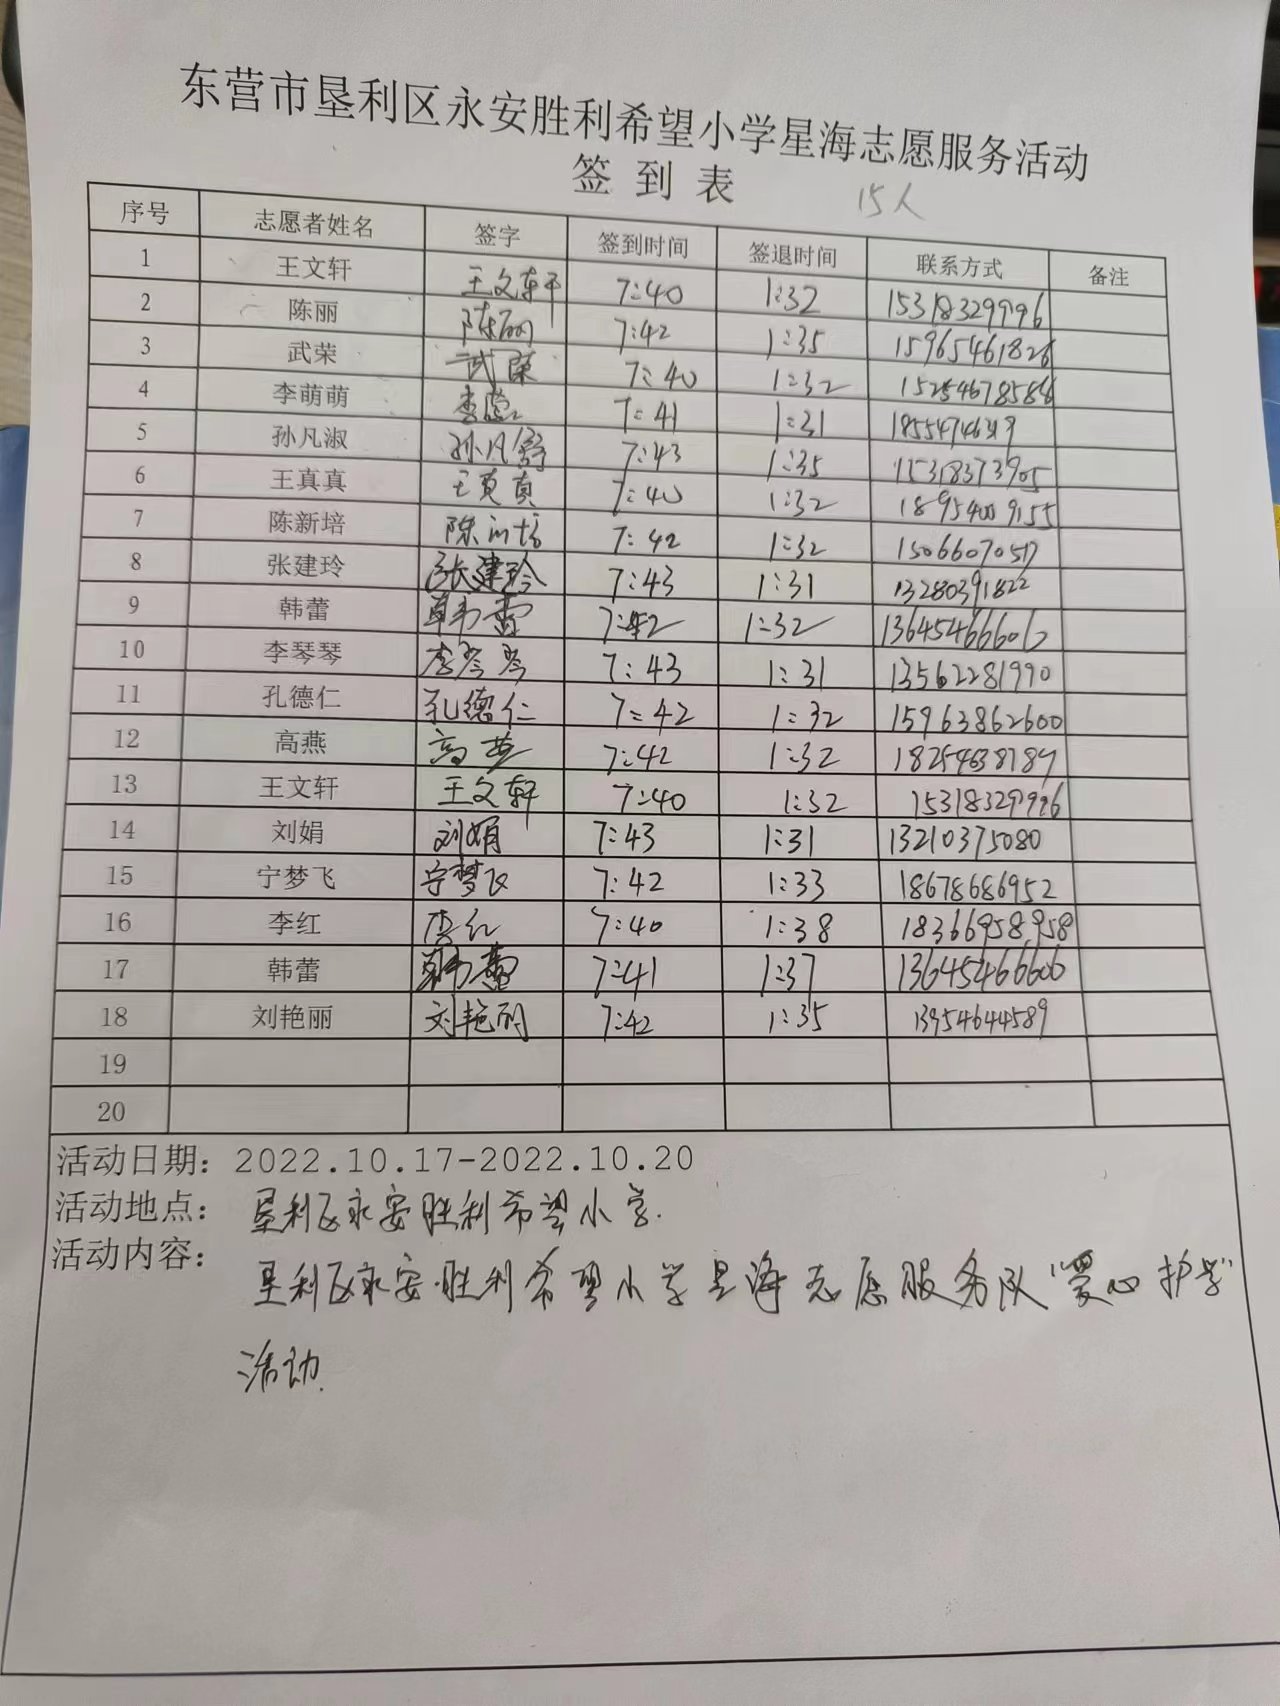 东营市垦利区永安胜利希望小学星海志愿服务活动
签 到 表
15人
序号 志愿者姓名 签字 签到时间 签退时间 联系方式 备注
1 王文轩 王文轩 7:40 1:32 15318329996
2 陈丽 陈丽 7:42 1:35 15965461826
3 武荣 武荣 7:40 1:32 15254678586
4 李萌萌 7:41 1:31
5 孙凡淑 7:43 1:35 15318373905
6 王真真 王真真 7:40 1:32 18954009155
7 陈新培 7:42 1:32 15066070517
8 张建玲 张建玲 7:43 1:31 13280391822
9 韩蕾 韩蕾 7:42 1:32
10 李琴琴 李琴琴 7:43 1:31 13562281990
11 孔德仁 孔德仁 7:42 1:32 15963862600
12 高燕 高燕 7:42 1:32
13 王文轩 王文轩 7:40 1:32 15318329996
14 刘娟 刘娟 7:43 1:31 13210375080
15 宁梦飞 宁梦飞 7:42 1:33 18678686952
16 李红 李红 7:40 1:38 18366958958
17 韩蕾 韩蕾 7:41 1:37 13645466606
18 刘艳丽 刘艳丽 7:42 1:35 13954644589
19
20
活动日期：2022.10.17-2022.10.20
活动地点：垦利区永安胜利希望小学.
活动内容：
垦利区永安胜利希望小学星海志愿服务队"爱心护学"
活动.